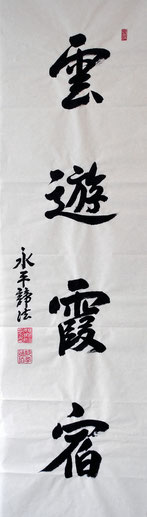 雲遊霞宿
永平諦法